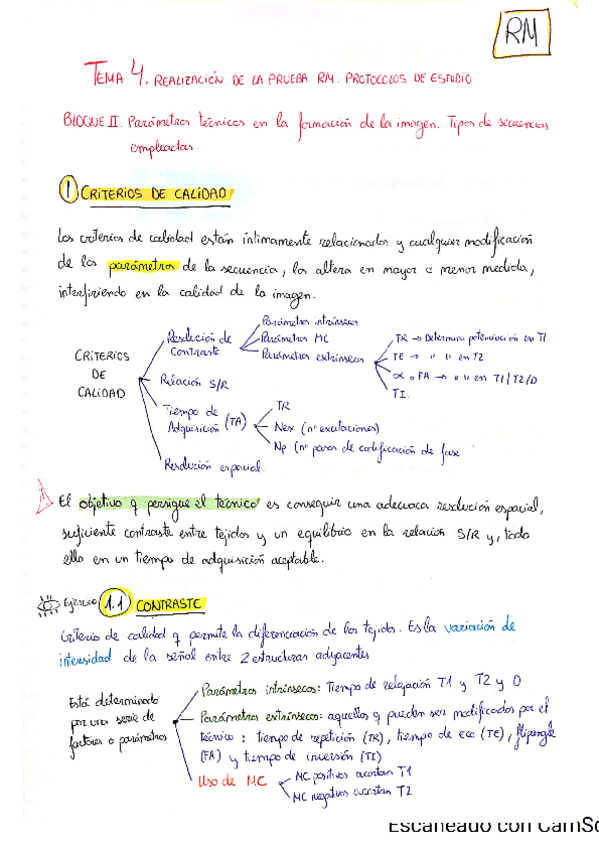 RM
TEMA 4. REALIZACIÓN DE LA PRUEBA RM. PROTOCOLOS DE ESTUDIO
BLOQUE II. Parámetros técnicos en la formación de la imagen. Tipos de secuencias
empleadas.
1 CRITERIOS DE CALIDAD
Los criterios de calidad están íntimamente relacionados y cualquier modificación
de los parámetros de la secuencia, los altera en mayor o menor medida,
interfiriendo en la calidad de la imagen.
CRITERIOS DE CALIDAD
Resolución de Contraste
Parámetros intrínsecos
Parámetros MC
Parámetros extrínsecos
TR → Determina potenciación en T1
TE → " " en T2
α o FA → " " en T1/T2/D
TI.
Relación S/R
Tiempo de Adquisición (TA)
TR
Nex (nº excitaciones)
Np (nº pasos de codificación de fase
Resolución espacial.
El objetivo q persigue el técnico es conseguir una adecuada resolución espacial,
suficiente contraste entre tejidos y un equilibrio en la relación S/R y, todo
ello en un tiempo de adquisición aceptable.
Ejercicio 1.1 CONTRASTE
Criterio de calidad q permite la diferenciación de los tejidos. Es la variación de
intensidad de la señal entre 2 estructuras adyacentes
Está determinado
por una serie de
factores o parámetros
Parámetros intrínsecos: Tiempo de relajación T1 y T2 y D
Parámetros extrínsecos: aquellos q pueden ser modificados por el
técnico: tiempo de repetición (TR), tiempo de eco (TE), flipangle
(FA) y tiempo de inversión (TI)
Uso de MC
MC positivos acortan T1
MC negativos acortan T2
Escaneado con CamSc